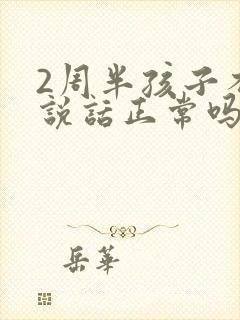 2周半孩子不
說話正常吗
岳華